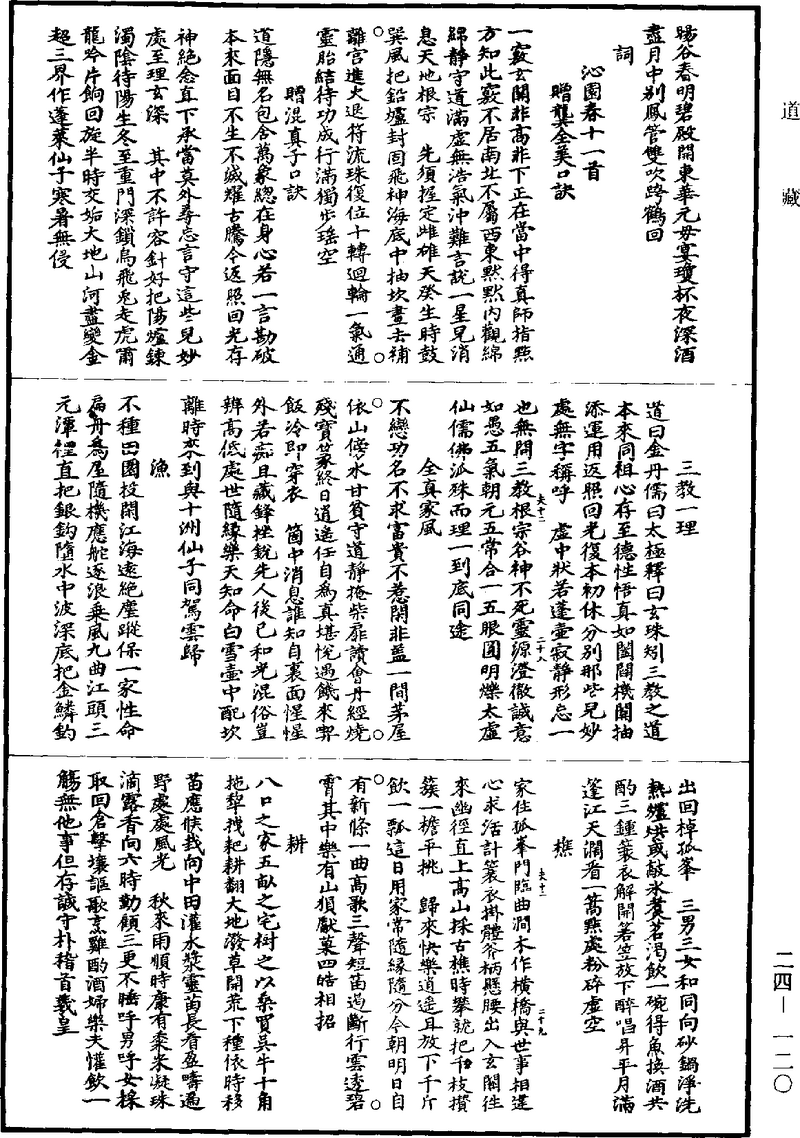 道藏
暘谷春明碧殿開東華元母宴瓊杯夜深酒
盡月中別鳳管雙吹跨鶴回
詞
沁園春十一首
贈龔全美口訣
一竅玄關非高非下正在當中得真師指點
方知此竅不居南北不屬西東默默內觀綿
綿靜守道滿虛無浩氣沖難言說一星兒消
息天地根宗　先須握定雌雄天癸生時鼓
巽風把鉛爐封固飛神海底中抽坎畫去補
離宮進火退符流珠復位十轉迴輪一氣通
靈胎結待功成行滿獨步瑤空
贈混真子口訣
道隱無名包含萬象總在身心若一言勘破
本來面目不生不滅耀古騰今返照回光存
神絕念直下承當莫外尋忘言守這些兒妙
處至理玄深　其中不許容針好把陽爐鍊
濁陰待陽生冬至重門深鎖烏飛兔走虎嘯
龍吟片餉回旋半時交姤大地山河盡變金
超三界作蓬萊仙子寒暑無侵
三教一理
道曰金丹儒曰太極釋曰玄珠矧三教之道
本來同祖心存至德性悟真如闔闢機關抽
添運用返照回光復本初休分別那些兒妙
處無字稱呼　虛中狀若蓬壺寂靜形忘一
也無閑三教根宗谷神不死靈源澄徹誠意
夫十二　二十八
如愚五氣朝元五常合一五眼圓明爍太虛
仙儒佛派殊而理一到底同途
全真家風
不戀功名不求富貴不惹閑非蓋一間茅屋
依山傍水甘貧守道靜掩柴扉讀會丹經燒
殘寶篆終日逍遙任自為真堪悅遇饑來喫
飯冷即穿衣　箇中消息誰知自裏面惺惺
外若痴且藏鋒挫銳先人後己和光混俗豈
辨高低處世隨緣樂天知命白雪壺中配坎
離時來到與十洲仙子同駕雲歸
漁
不種田園投閑江海遠絕塵蹤保一家性命
扁舟為屋隨機應舵逐浪乘風九曲江頭三
元潭裡直把銀鈎墮水中波深底把金鱗釣
出回棹孤峯　三男三女和同向砂鍋淨洗
熱爐烘或敲氷煮茗渴飲一碗得魚換酒共
酌三鍾簑衣解開箬笠放下醉唱昇平月滿
篷江天濶看一蒿點處粉碎虛空
樵
夫十二　二十九
家住孤峯門臨曲澗木作橫橋與世事相違
心求活計簑衣掛體斧柄懸腰出入玄關往
來幽徑直上高山採古樵時攀就把千枝攢
簇一檐平挑　歸來快樂逍遙且放下千斤
飲一瓢這日用家常隨緣隨分今朝明日自
有新條一曲高歌三聲短笛遏斷行雲透碧
霄其中樂有山猿獻菓四皓相招
耕
八口之家五畝之宅樹之以桑買吳牛十角
拖犂拽耙耕翻大地潑草開荒下種依時移
苗應候栽向中田灌水漿靈苗長看盈疇遍
野處處風光　秋來雨順時康有黍米凝珠
滴露香向六時勤顧三更不睡呼男呼女採
取回倉擊壤謳歌烹雞酌酒婦樂夫懽飲一
觴無他事但存誠守朴稽首羲皇
二四—一二〇